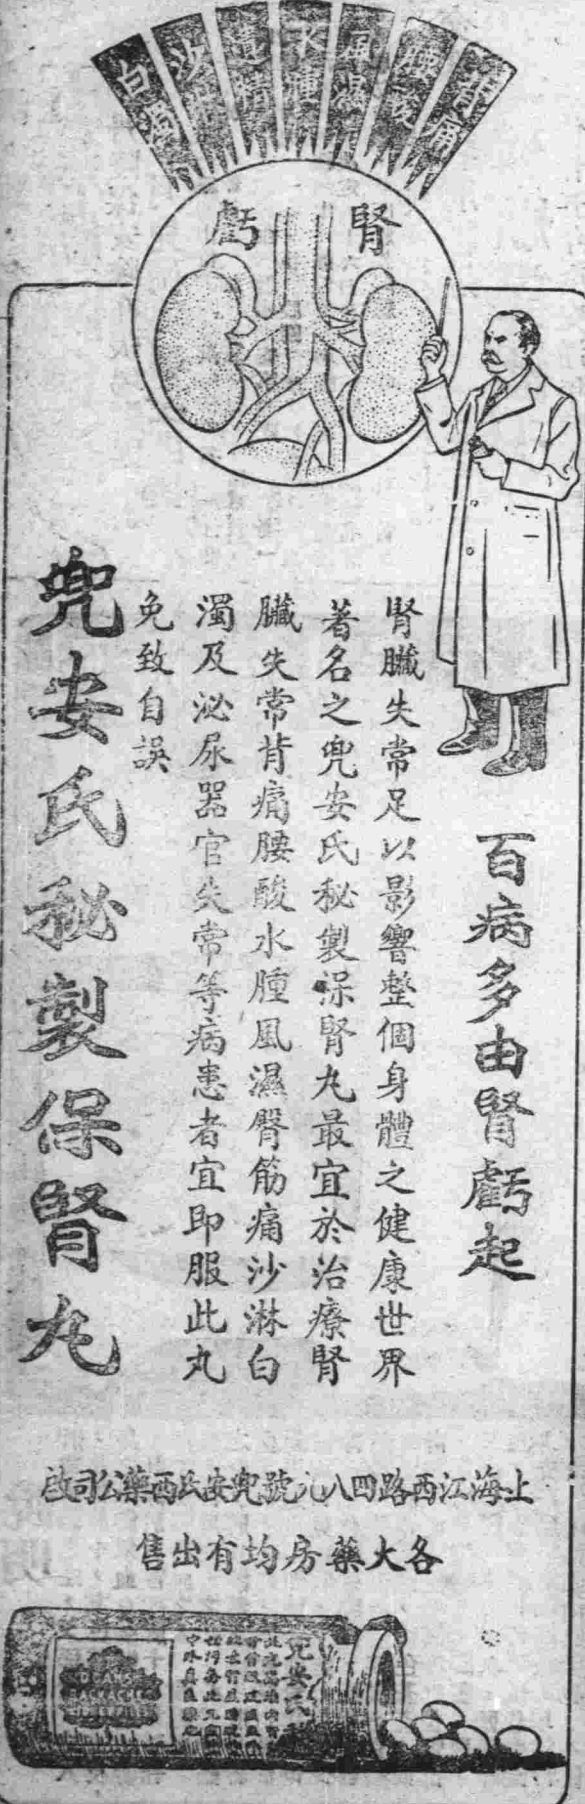 背痛
腰酸
風濕
水腫
遺精
沙淋
白濁
腎虧
百病多由腎虧起
腎臟失常足以影響整個身體之健康世界
著名之兜安氏秘製保腎丸最宜於治療腎
臟失常背痛腰酸水腫風濕臀筋痛沙淋白
濁及泌尿器官失常等病患者宜即服此丸
免致自誤
兜安氏秘製保腎丸
上海江西路四八九號兜安氏西藥公司啟
各大藥房均有出售
DOAN'S
BACKACHE
兜安氏